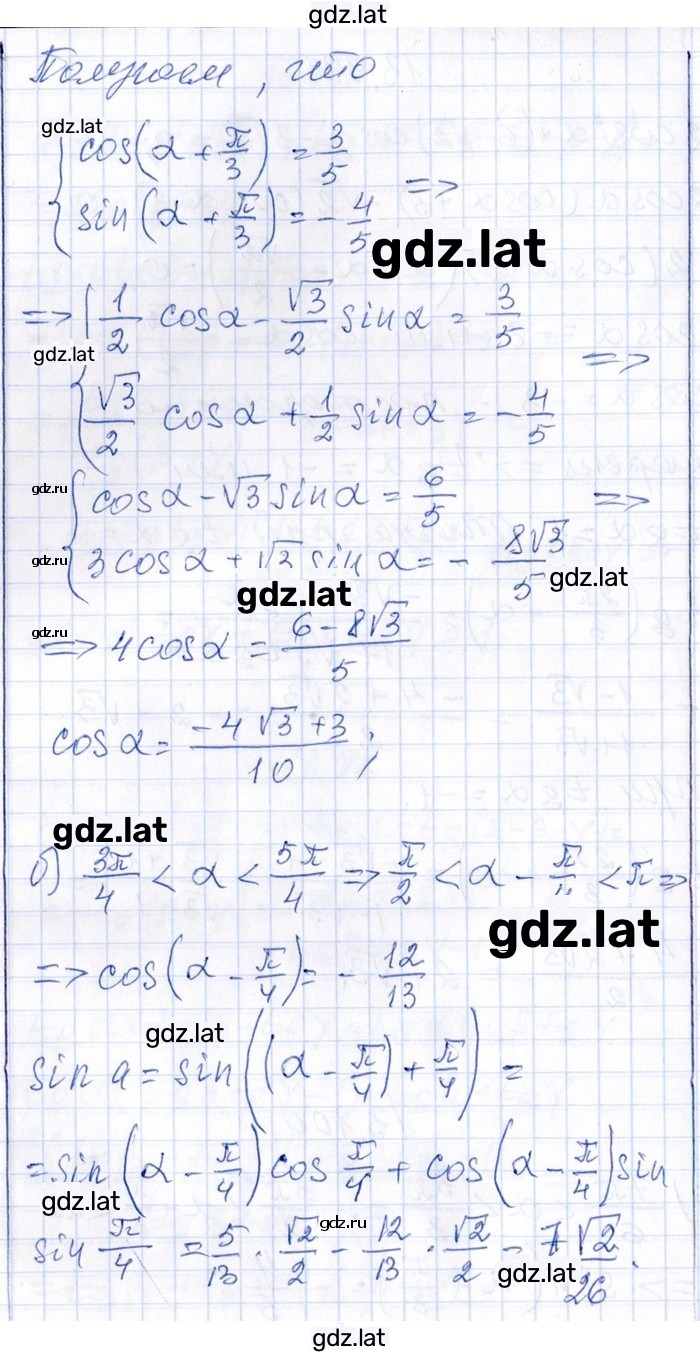 gdz.lat
Получаем, что
gdz.lat
cos(α + π/3) = 3/5
sin(α + π/3) = - 4/5 =>
gdz.lat
=> 1/2 cosα - √3/2 sinα = 3/5
gdz.lat
√3/2 cosα + 1/2 sinα = - 4/5 =>
gdz.ru
cosα - √3 sinα = 6/5 =>
gdz.ru
3cosα + √3 sinα = - 8√3/5
gdz.lat
gdz.lat
gdz.ru
=> 4cosα = (6 - 8√3)/5
cosα = (-4√3 + 3)/10;
gdz.lat
б) 3π/4 < α < 5π/4 => π/2 < α - π/4 < π =>
gdz.lat
=> cos(α - π/4) = - 12/13
gdz.lat
sin a = sin((α - π/4) + π/4) =
= sin(α - π/4) cos π/4 + cos(α - π/4) sin
gdz.lat
gdz.ru
sin π/4 = 5/13 · √2/2 - 12/13 · √2/2 = - 7√2/26.
gdz.lat
gdz.lat